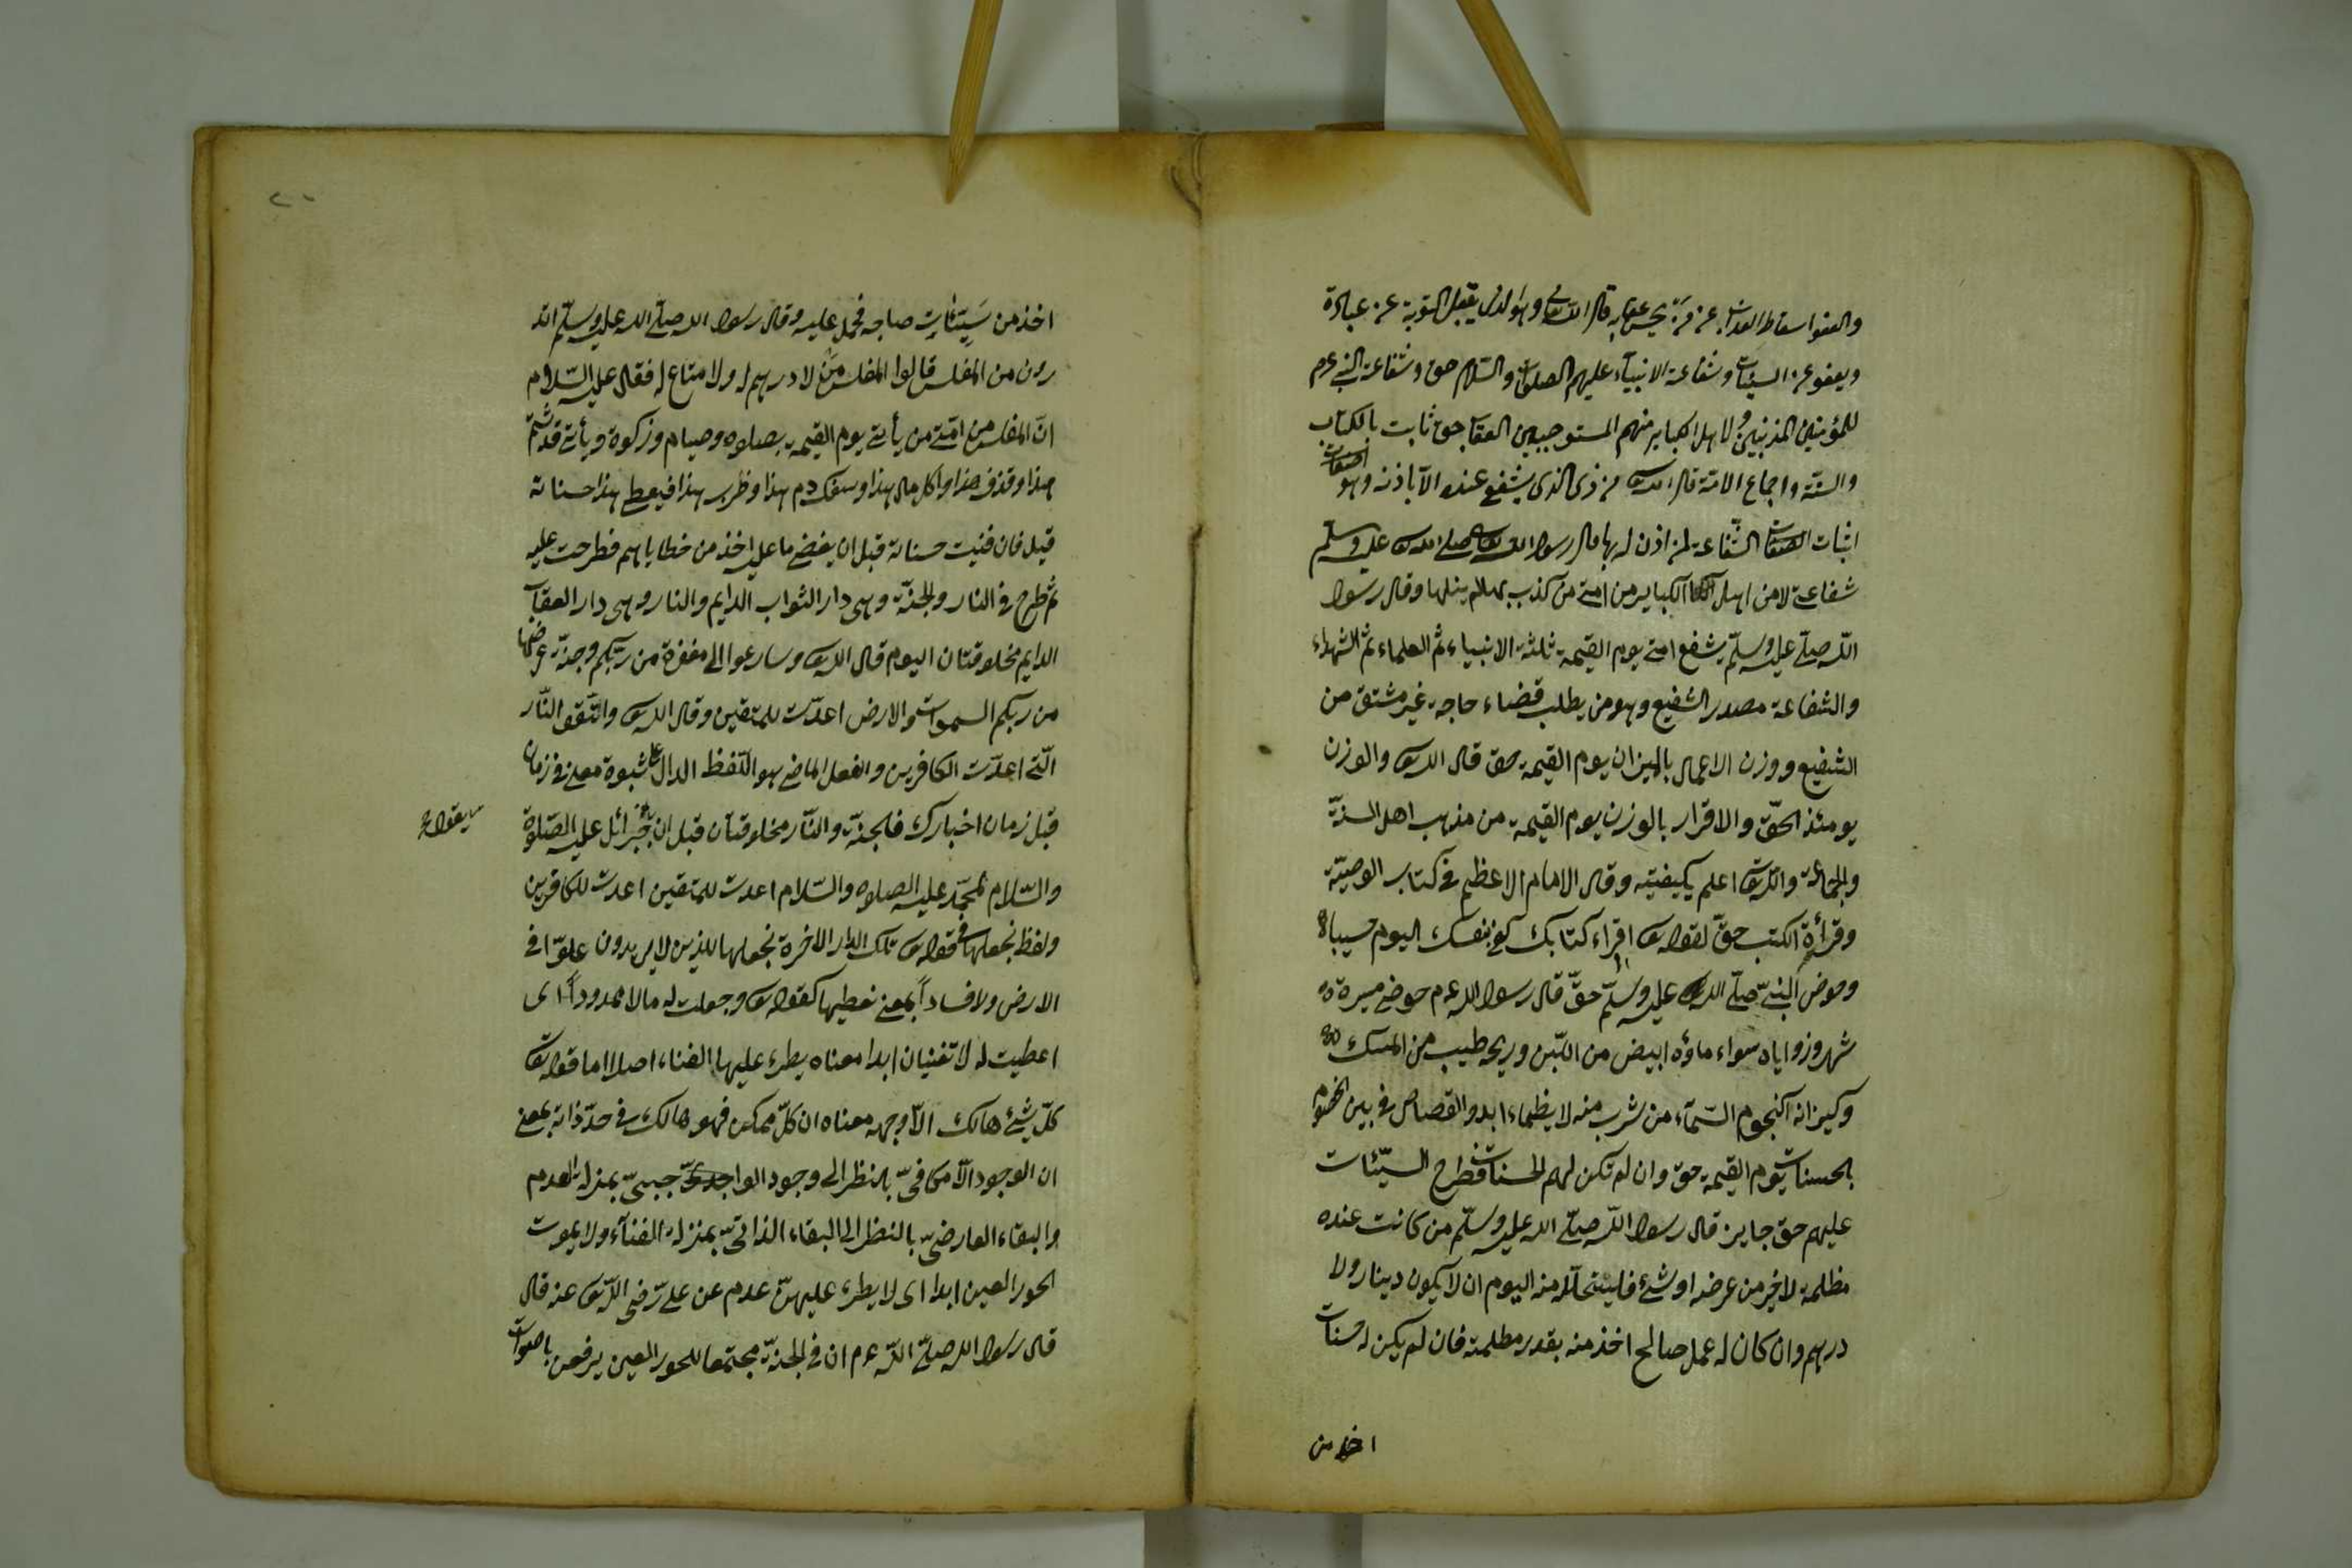 والعفو اسقاط العذاب عن من يحسن عقابه قال الله تع وهو الذى يقبل التوبة عن عباده
ويعفو عن السيئات وشفاعة الانبيآء عليهم الصلوات والسلام حق وشفاعة النبى عم
للمؤمنين المذنبين ولاهل الكباير منهم المستوجبين العقاب حق ثابت بالكتاب
والسنة واجماع الامة قال الله تع من ذى الذى يشفع عنده الا باذنه وهو
اثبات الشفاعة لمن اذن له بها قال رسول الله صلى الله عليه وسلم
شفاعتى لامن اهل الكباير من امتى من كذب بها لم ينلها وقال رسول
الله صلى عليه وسلم يشفع امتى يوم القيمة ثلثة الانبياء ثم العلماء ثم الشهداء
والشفاعة مصدر الشفيع وهو من يطلب قضاء حاجة غير مشتق من
الشفيع ووزن الاعمال بالميزان يوم القيمة حق قال الله تع والوزن
يومئذ الحق والاقرار بالوزن يوم القيمة من مذهب اهل السنة
والجماعة والله تع اعلم بكيفيته وقال الامام الاعظم فى كتاب الوصية
وقرأة الكتب حق لقوله تع اقراء كتابك كفى بنفسك اليوم حسيبا
وحوض النبى صلى الله عليه وسلم حق قال رسول الله عم حوضى مسيرة
شهر وزواياه سواء ماؤه ابيض من اللبن وريحه طيب من المسك
وكيزانه كنجوم السمآء من شرب منه لا يظماء ابدا والقصاص فى بين الخصوم
بالحسنات يوم القيمة حق وان لم تكن لهم الحسنات فطرح السيئات
عليهم حق جايز قال رسول الله صلى الله عليه وسلم من كانت عنده
مظلمة لاخيه من عرضه او شئ فليتحلله منه اليوم ان لا يكون دينار ولا
درهم وان كان له عمل صالح اخذ منه بقدر مظلمته فان لم يكن له حسنات
اخذ من
٢٠
اخذ من سيئات صاحبه فحمل عليه وقال رسول الله صلى الله عليه وسلم اتد
رون من المفلس قالوا المفلس من لا درهم له ولا متاع له فقال عليه السلام
ان المفلس من امتى من يأتى يوم القيمة بصلوة وصيام وزكوة ويأتى قد شتم
هذا وقذف هذا واكل مال هذا وسفك دم هذا وضرب هذا فيعطى هذا حسناته
قبل فان فنيت حسناته قبل ان يقضى ما عليه اخذ من خطاياهم فطرحت عليه
ثم طرح فى النار والجنة وهى دار الثواب الدايم والنار وهى دار العقاب
الدايم مخلوقتان اليوم قال الله تع وسارعوا الى مغفرة من ربكم وجنة عرضها
من ربكم السموات والارض اعدت للمتقين وقال الله تع واتقو النار
التى اعدت الكافرين والفعل الماضى هو اللفظ الدال على ثبوة معنى فى زمان
قبل زمان اخبارك فالجنة والنار مخلوقتان قبل ان جبرائل عليه الصلوة
يقول
والسلام لمحمد عليه الصلوة والسلام اعدت للمتقين اعدت للكافرين
ولفظ نجعلها فى قوله تع تلك الدار الاخرة نجعلها للذين لا يريدون علوا فى
الارض ولا فسادا بمعنى نعطيها كقوله تع وجعلت له مالا ممدودا اى
اعطيت له لا تفنيان ابدا معناه يطرء عليها الفناء اصلا اما قوله تع
كل شئ هالك الا وجهه معناه ان كل ممكن فهو هالك فى حد ذاته بمعنى
ان الوجود الامكانى بالنظر الى وجود الواجبى بمنزلة العدم
والبقاء العارضى بالنظر الى البقاء الذاتى بمنزلة الفنآء ولا يموت
الحور العين ابدا اى لا يطرء عليهن عدم عن على رضى الله تع عنه قال
قال رسول الله صلى الله عم ان فى الجنة مجتمعا للحور العين يرفعن باصوات